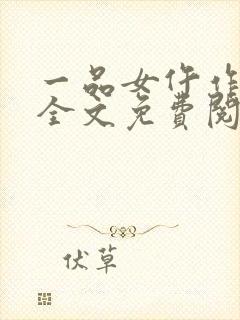 一品女仵作
全文免費閱
伏草